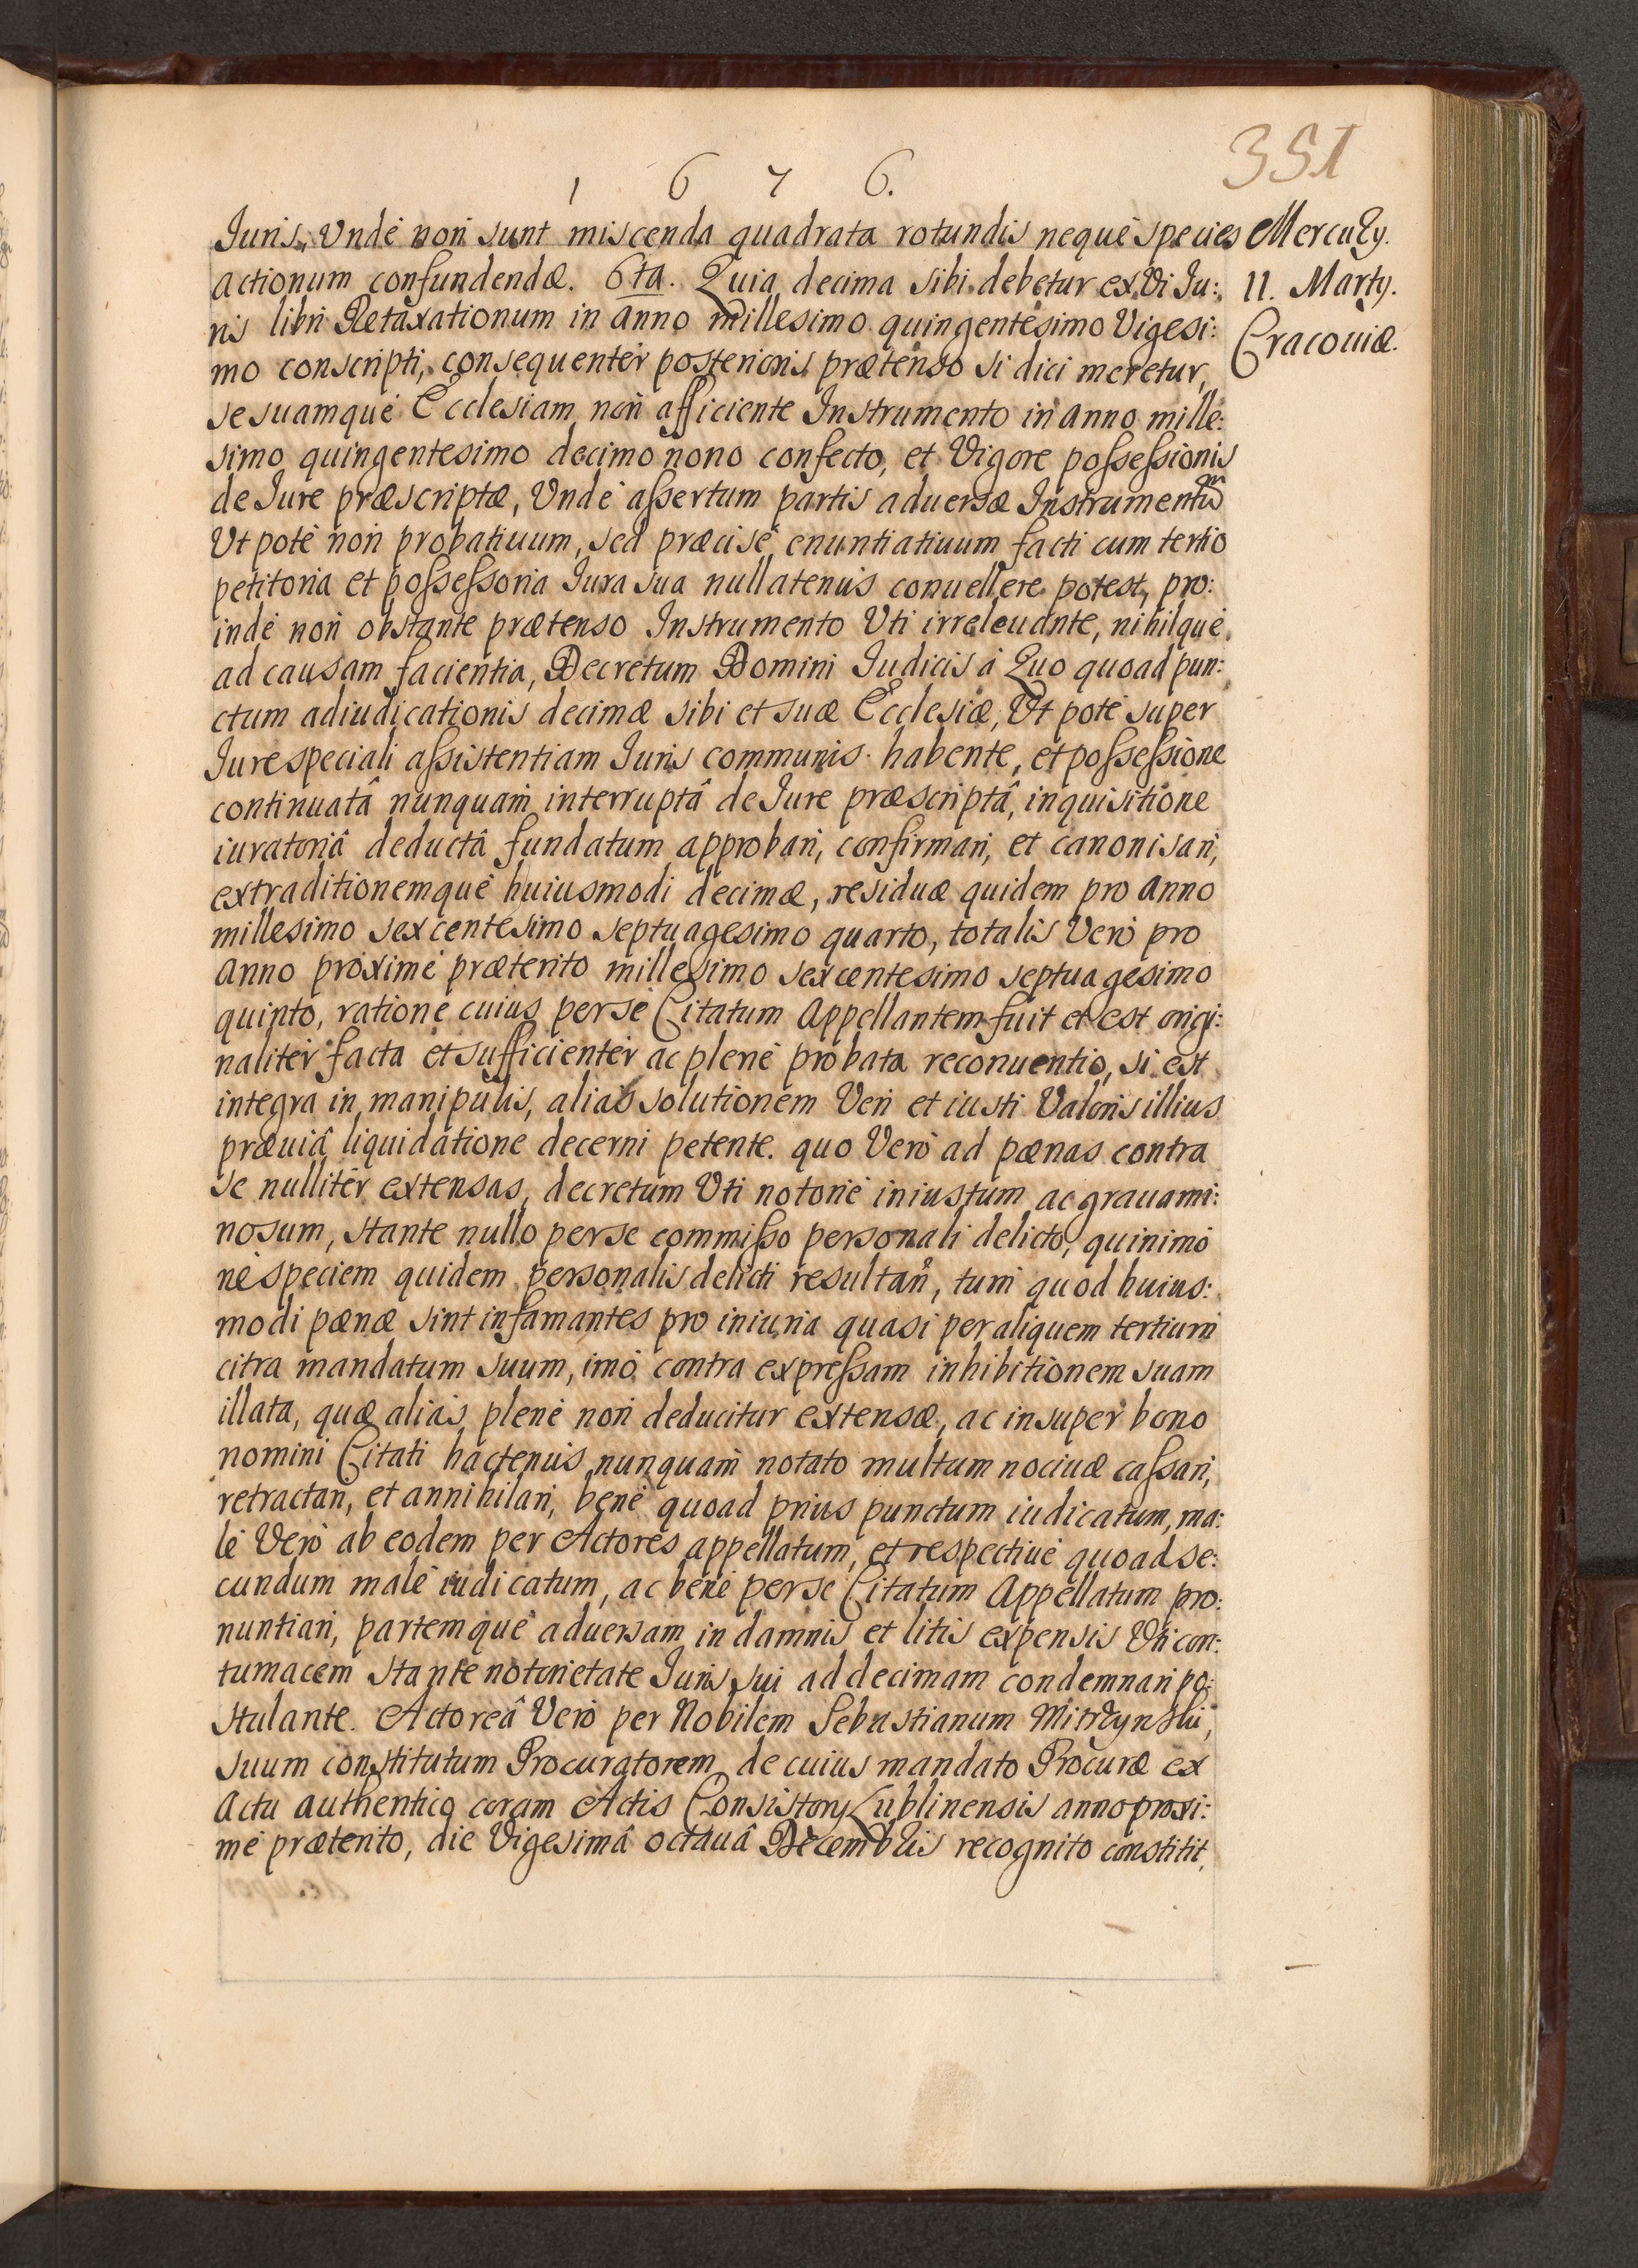 351
1 6 7 6.
Juris, Undè non sunt miscenda quadrata rotundis nequè species
Mercurÿ.
11. Martÿ.
Cracouiæ.
actionum confundendæ. 6ta. Quia decima sibi debetur ex Vi Ju:
ris libri Retaxationum in anno millesimo quingentesimo Vigesi:
mo conscripti, consequentèr posterioris prætenso si dici meretur,
se suamquè Ecclesiam non afficiente Instrumento in anno mille:
simo quingentesimo decimo nono confecto, et Vigore possessionis
de Jure præscriptæ, Undè assertum partis aduersæ Instrumentũ
Ut potè non probatiuum, sed præcisè enuntiatiuum facti cum tertio
petitoria et possessoria Jura sua nullatenùs conuellere potest, pro:
indè non obstante prætenso Instrumento Uti irreleuante, nihilquè
ad causam facientia, Decretum Domini Judicis à Quo quoad pun:
ctum adiudicationis decimæ sibi et suæ Ecclesiæ, Ut potè super
Jure speciali assistentiam Juris communis habente, et possessione
continuatâ nunquam interruptâ de Jure præscriptâ, inquisitione
iuratoriâ deductâ fundatum approbari, confirmari, et canonisari,
extraditionemquè huiusmodi decimæ, residuæ quidem pro Anno
millesimo sexcentesimo septuagesimo quarto, totalis Verò pro
Anno proximè præterito millesimo sexcentesimo septuagesimo
quinto, ratione cuius per se Citatum Appellantem fuit et est origi:
naliter facta et sufficientèr ac plenè probata reconuentio, si est
integra in manipulis, alias solutionem Veri et iusti Valoris illius
præuiâ liquidatione decerni petente. quo Verò ad pænas contra
se nullitèr extensas, decretum Uti notoriè iniustum ac grauami:
nosum, stante nullo per se commisso personali delicto, quinimò
nè speciem quidem personalis delicti resultañ, tum quod huius:
modi pænæ sint infamantes pro iniuria quasi per aliquem tertium
citra mandatum suum, imò contra expressam inhibitionem suam
illata, quæ aliàs plenè non deducitur extensæ, ac insupèr bono
nomini Citati hactenùs nunquam notato multum nociuæ cassari,
retractari, et annihilari, benè quoad prius punctum iudicatum, ma:
lè Verò ab eodem per Actores appellatum, et respectiuè quoad se:
cundum malè iudicatum, ac benè per se Citatum Appellatum pro:
nuntiari, partemquè aduersam in damnis et litis expensis Uti con:
tumacem stante notorietate Juris sui ad decimam condemnari po:
stulante. Actoreâ Verò per Nobilem Sebastianum
suum constitutum Procuratorem, de cuius mandato Procuræ ex
Actu authentico coram Actis Consistorÿ Lublinensis anno proxi:
mè præterito, die Vigesimâ octauâ Decembris recognito constitit,